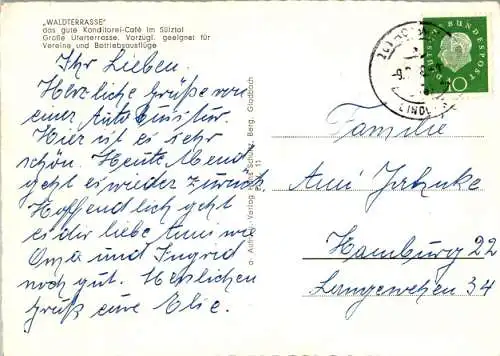 „WALDTERRASSE"
das gute Konditorei-Café im Sülztal
Große Uferterrasse. Vorzügl. geeignet für
Vereine und Betriebsausflüge
Ihr Lieben.
Herzliche Grüße von
einer Autobustour.
Hier ist es sehr
schön. Heute Abend
geht es wieder zurück
Hoffendlich geht
es dir liebe Anni wie
Oma und Ingrid
noch gut. Herzlichen
Gruß eure Else.
Schulz, Berg. Gladbach
DEUTSCHE BUNDESPOST
10
LINDLAR
Familie
Hamburg 22
34